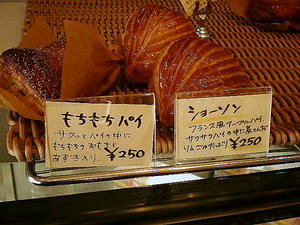 もちもちパイ
サクッとパイの中に
もちもちのおもちと
あずき入り。 ¥250
ショーソン
フランス風アップルパイ。
サクサクパイの中に煮こんだ
りんごがたっぷり ¥250